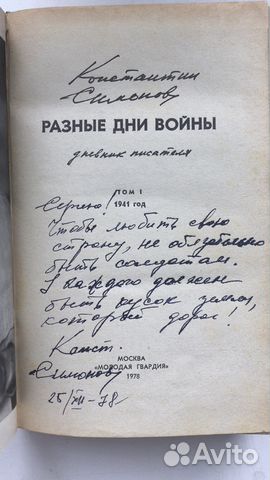 Константин
Симонов
РАЗНЫЕ ДНИ ВОЙНЫ
дневник писателя
ТОМ I
1941 год
Сергею!
Чтобы любить свою
страну, не обязательно
быть солдатом.
У каждого должен
быть кусок земли,
который дорог!
Конст.
МОСКВА
«МОЛОДАЯ ГВАРДИЯ»
Симонов
1978
25/XII-78
Avito